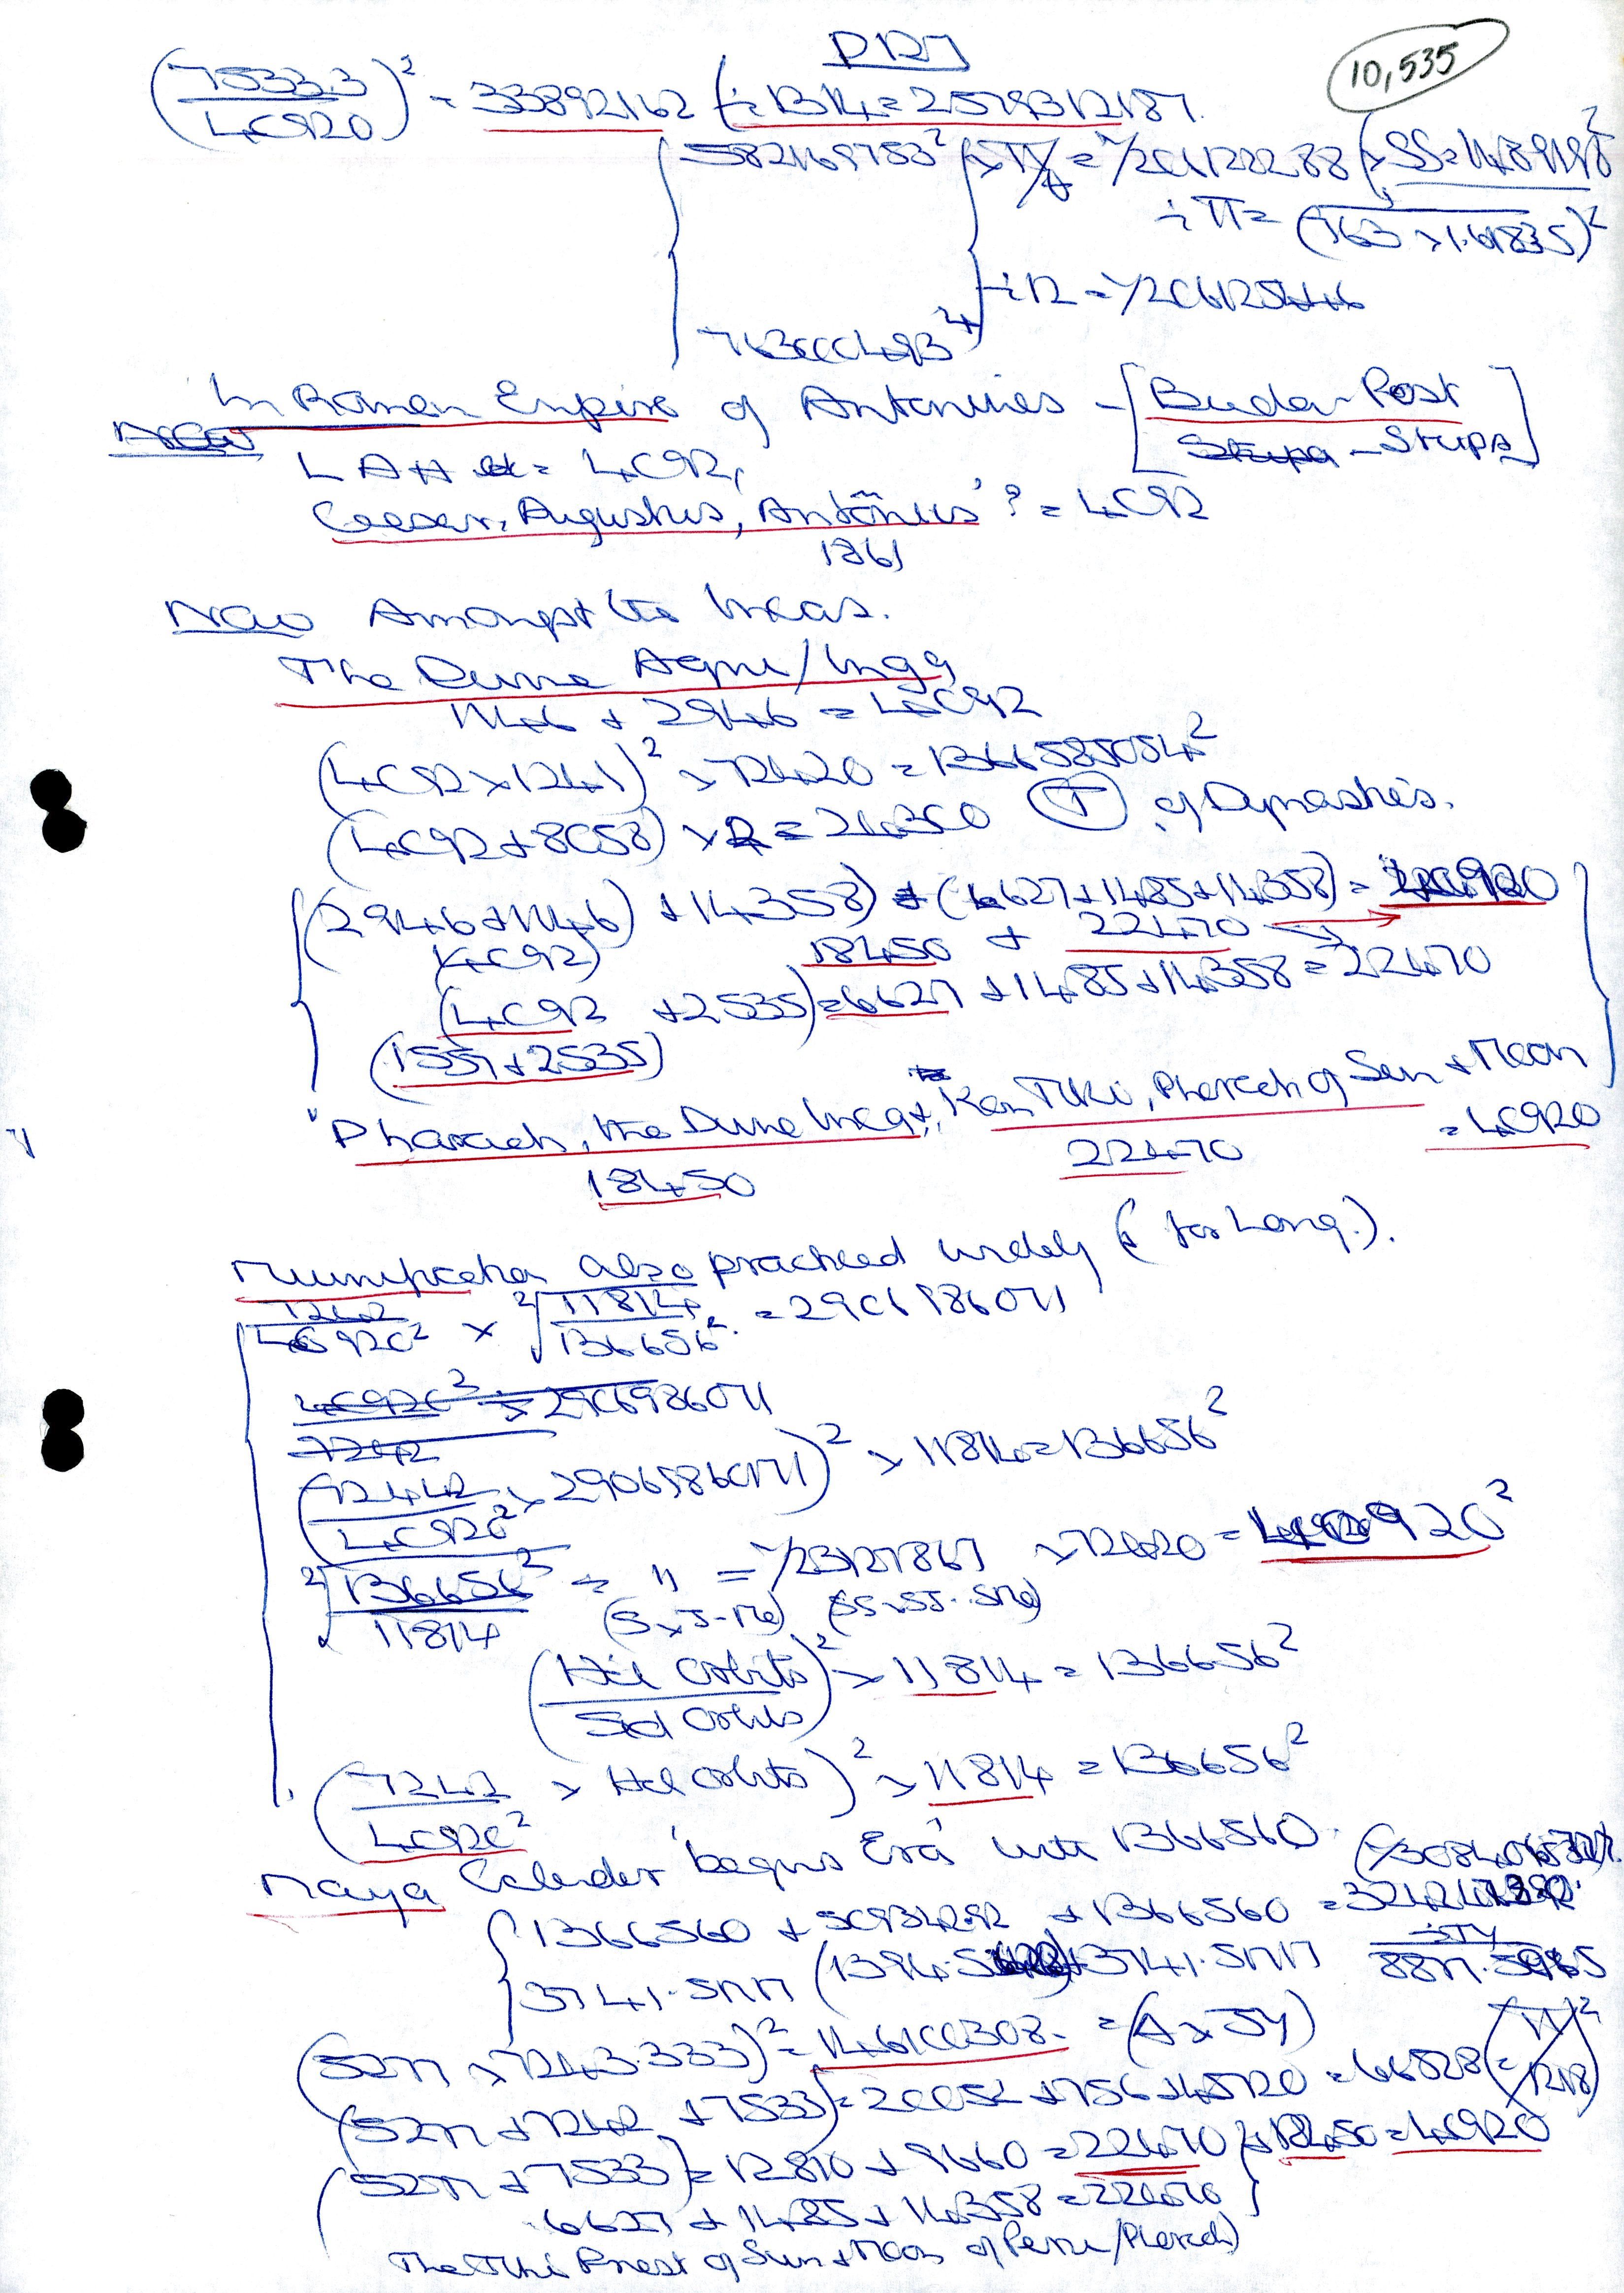 P127
10,535
(7533.3 / 40920)² = 33892162 (÷ 1314 = 2579312187.
582169753² (× π/4 = 1/2041122288 (× SS = 1489198²
÷ π = (763 × 1.61835)²
763000493⁴
÷ 12 = 1/206125446
In Roman Empire of Antonines - [Budar Post
Now
Stupa - Stupa]
LAH = 4092,
Caesar, Augustus, Antōnius' ? = 4092
1861
Now Amongst the Incas.
The Divine Agni/Inga
1146 + 2946 = 4092
(4092 × 1241)² × 72420 = 1366585054²
(4092 + 8058) × 2 = 24300 (T) of Dynasties.
(2946 + 1146) + 14358) + (6627 + 1485 + 14358) = 40920
(4092) 18450 + 22470
(4092 + 2535) = 6627 + 1485 + 14358 = 22470
(1557 + 2535)
"Pharaoh, the Divine Inca +, Kon Tiki, Pharaoh of Sun + Moon
= 40920
18450 22470
Mummification also practiced widely (& for Long.).
7242 / 40920² × ²√11814 / 136656² = 2906986071
40920² × 2906986071
7242
(7242 / 40920² × 2906986071)² × 11814 = 136656²
²√136656² / 11814 ÷ " = 1/23127867 × 72420 = 40920²
(S × J - Me) (SS × SJ - SMe)
(Hel Orbits / Sid Orbits)² × 11814 = 136656²
(7242 / 40920² × Hel Orbits)² × 11814 = 136656²
Maya Calender 'begins Era' with 1366560.
{1366560 + 509342.92 + 1366560 = 3242472.92
3741.5177 + 3741.5177
÷ JY
8877.5965
(5277 × 7243.333)² = 146100308 = (A × JY)
(5277 + 7242 + 7533) = 20052 + 756 + 45720 = 66528
(5277 + 7533) = 12810 + 9660 = 22470 } + 18450 = 40920
6627 + 1485 + 14358 = 22470
The Tiki Priest of Sun + Moon of Peru / Pharaoh)